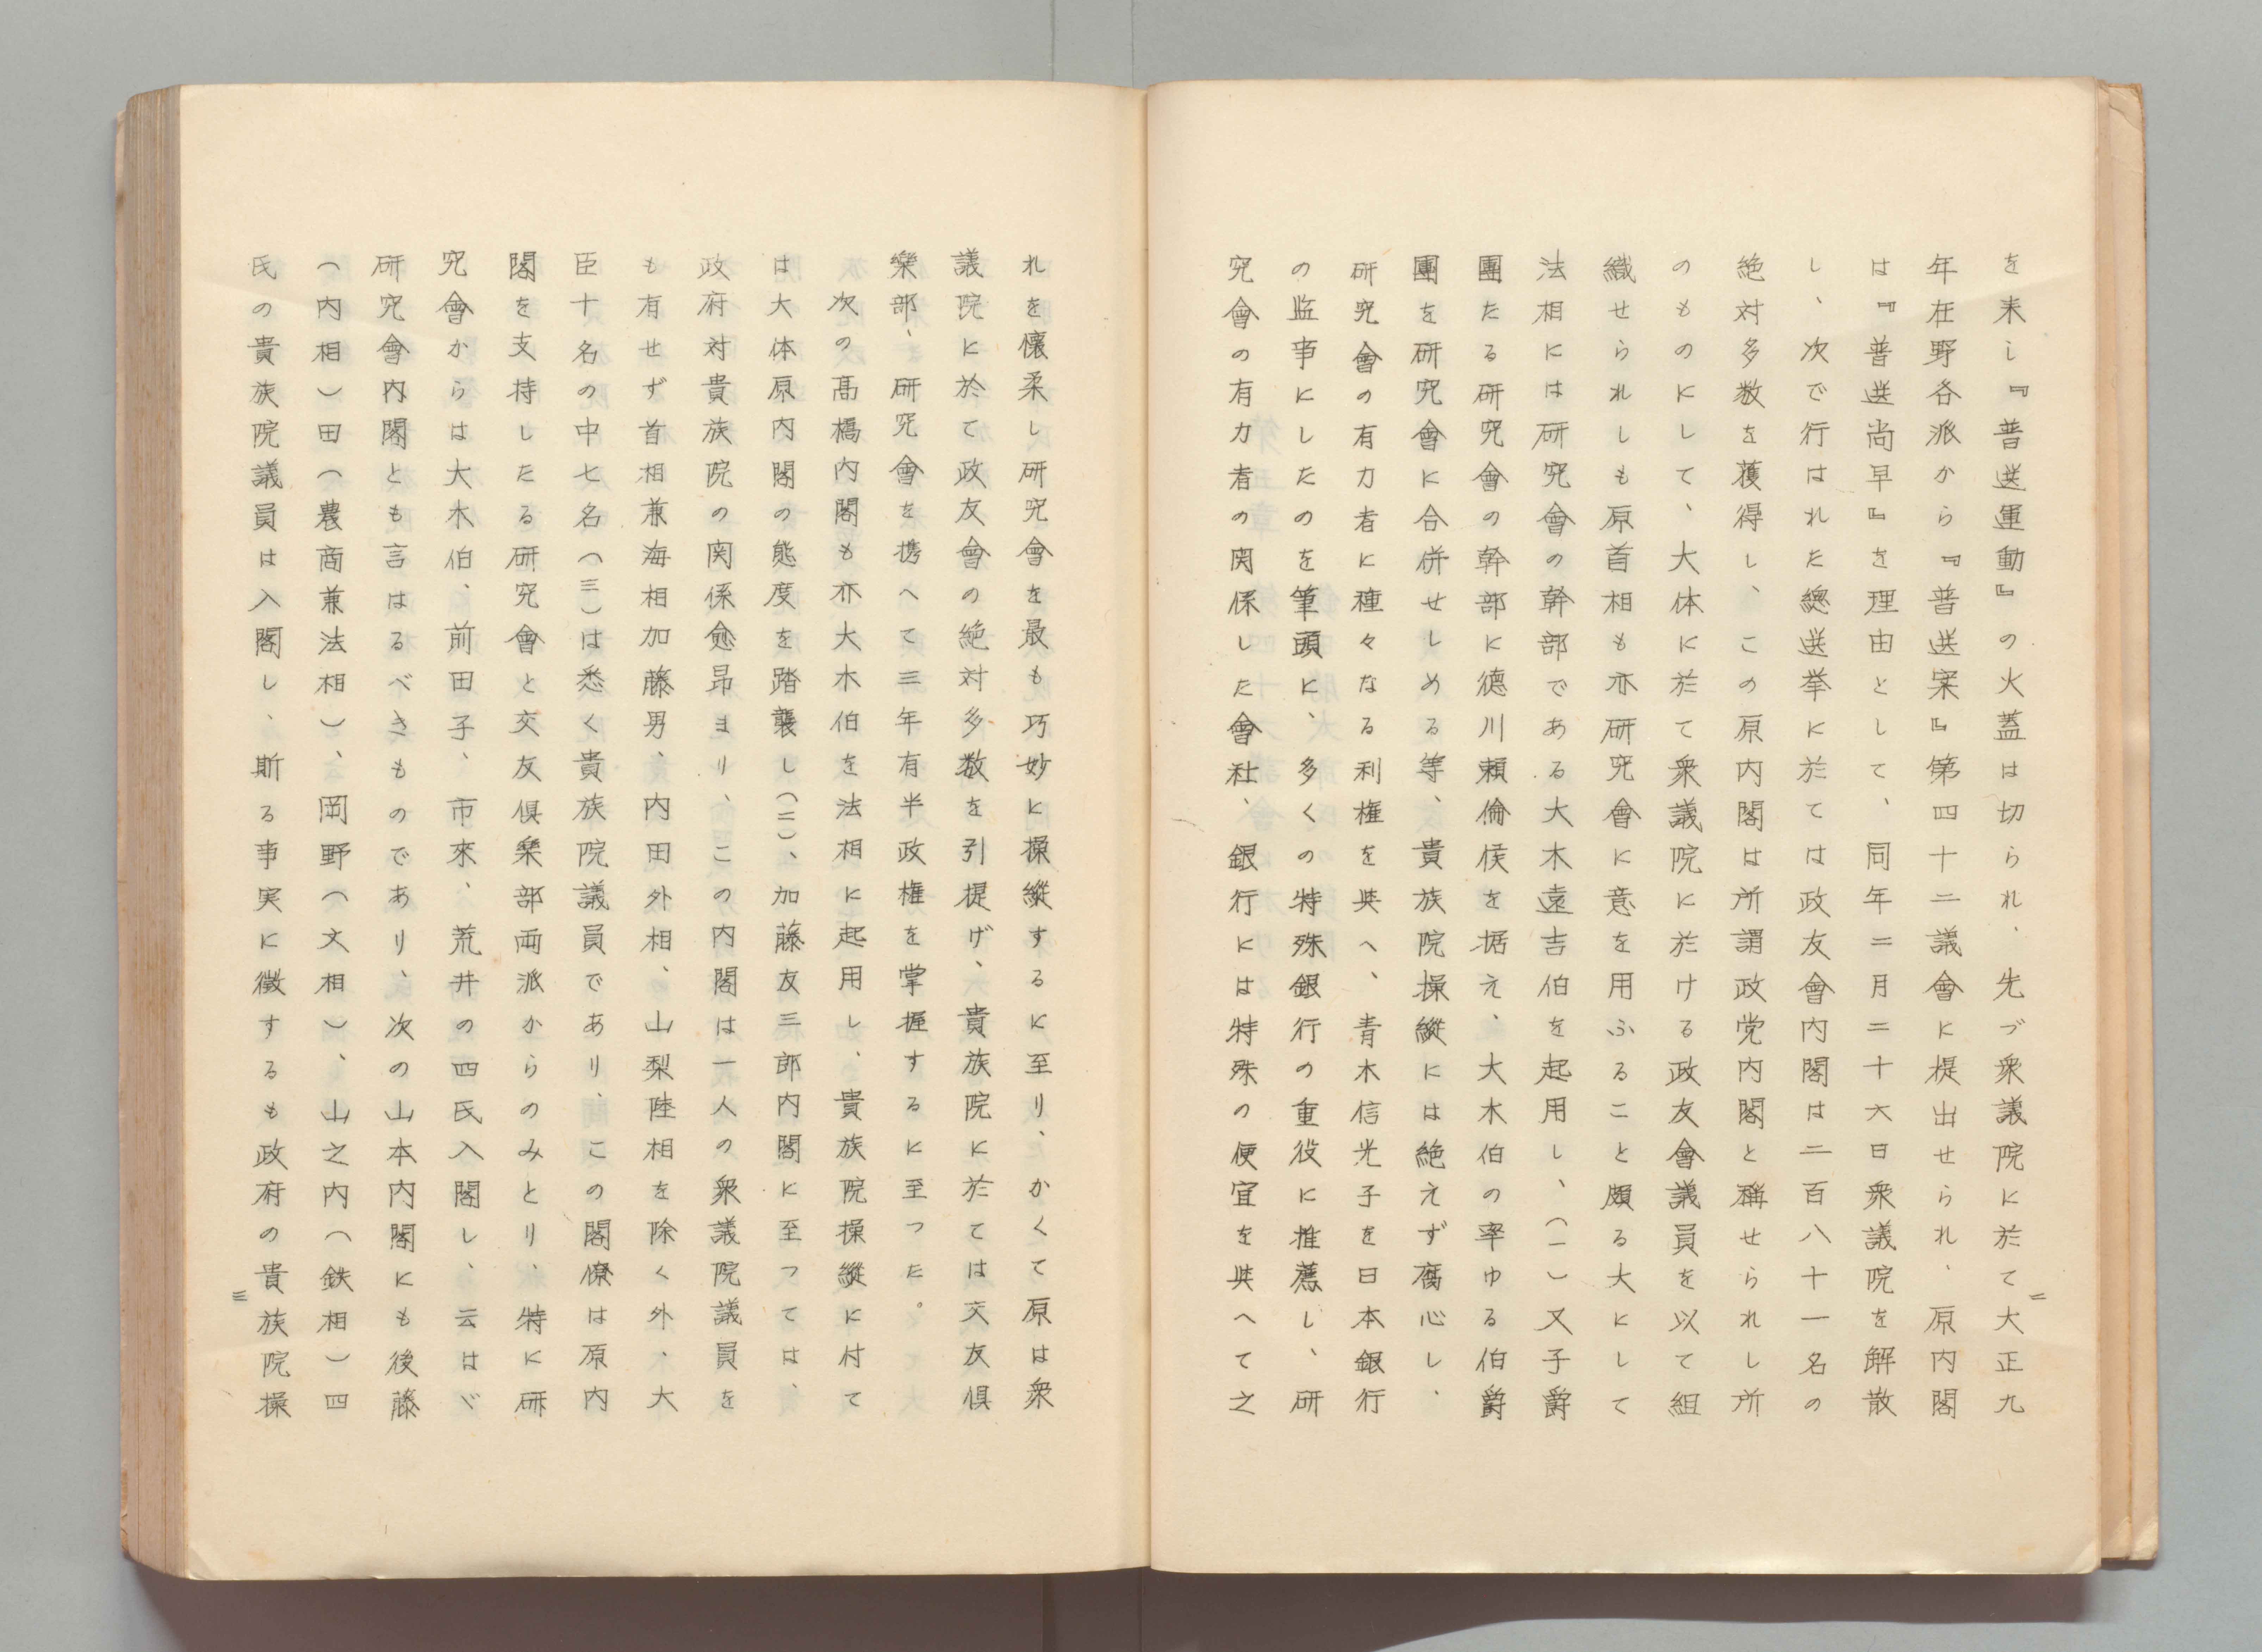 を来し『普選運動』の火蓋は切られ、先づ衆議院に於て大正九
年在野各派から『普選案』第四十二議會に提出せられ、原内閣
は『普選尚早』を理由として、同年二月二十六日衆議院を解散
し、次で行はれた總選挙に於ては政友會内閣は二百八十一名の
絶対多数を獲得し、この原内閣は所謂政党内閣と稱せられし所
のものにして、大体に於て衆議院に於ける政友會議員を以て組
織せられしも原首相も亦研究會に意を用ふること頗る大にして
法相には研究會の幹部である大木遠吉伯を起用し、(一)又子爵
團たる研究會の幹部に徳川頼倫侯を据え、大木伯の率ゆる伯爵
團を研究會に合併せしめる等、貴族院操縦には絶えず腐心し、
研究會の有力者に種々なる利権を與へ、青木信光子を日本銀行
の監事にしたのを筆頭に、多くの特殊銀行の重役に推薦し、研
究會の有力者の関係した會社、銀行には特殊の便宜を與へて之
二
れを懐柔し研究會を最も巧妙に操縦するに至り、かくて原は衆
議院に於て政友會の絶対多数を引提げ、貴族院に於ては交友倶
楽部、研究會を携へて三年有半政権を掌握するに至った。
次の高橋内閣も亦大木伯を法相に起用し、貴族院操縦に付て
は大体原内閣の態度を踏襲し(二)、加藤友三郎内閣に至つては、
政府対貴族院の関係愈昂まり、この内閣は一人の衆議院議員を
も有せず首相兼海相加藤男、内田外相、山梨陸相を除く外、大
臣十名の中七名(三)は悉く貴族院議員であり、この閣僚は原内
閣を支持したる研究會と交友倶楽部両派からのみとり、特に研
究會からは大木伯、前田子、市來、荒井の四氏入閣し、云はゞ
研究會内閣とも言はるべきものであり、次の山本内閣にも後藤
(内相)田(農商兼法相)、岡野(文相)、山之内(鉄相)四
氏の貴族院議員は入閣し、斯る事実に徴するも政府の貴族院操
三